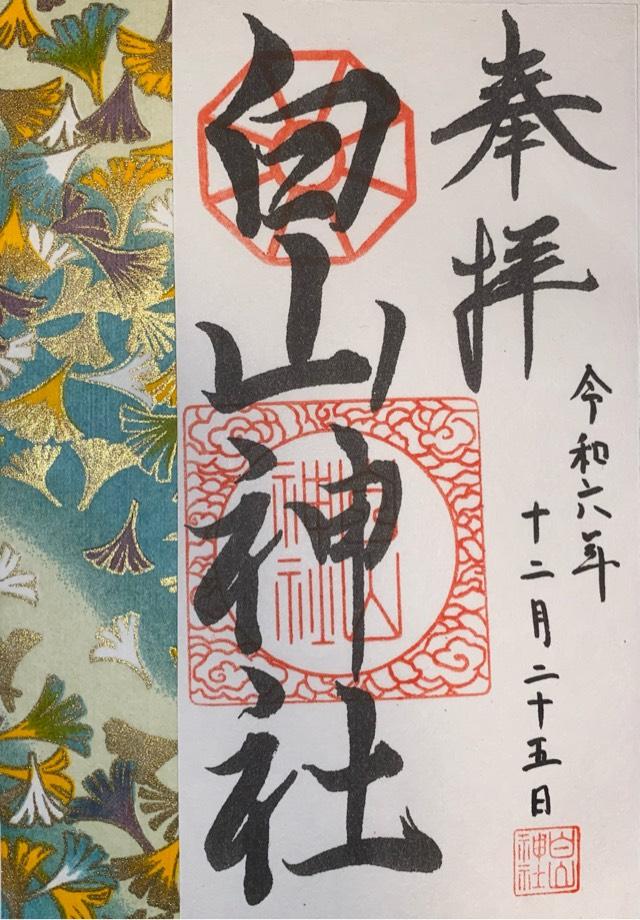 奉拝
令和六年
十二月二十五日
白山神社
白山
神社
白山
神社